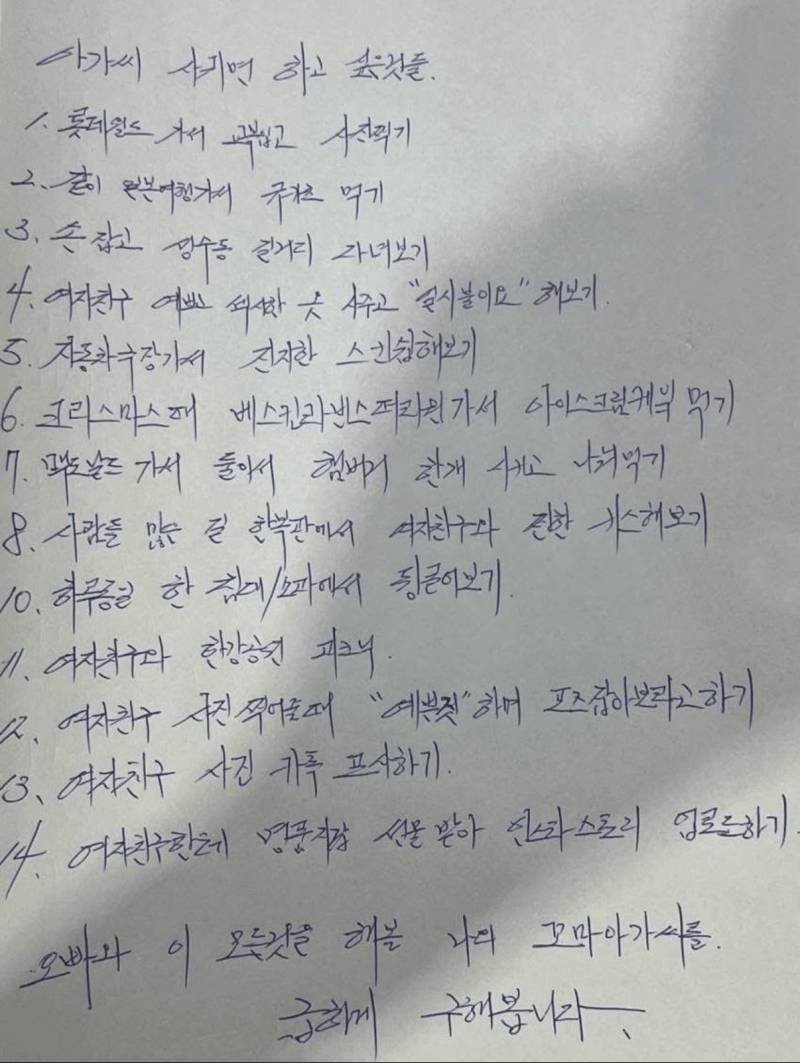 아가씨 사귀면 하고 싶은것들.
1. 롯데월드 가서 교복입고 사진찍기
2. 같이 일본여행가서 규카츠 먹기
3. 손잡고 성수동 길거리 다녀보기
4. 여자친구 예쁘 섹시한 옷 사주고 "일시불이요" 해보기.
5. 자동차극장가서 진지한 스킨쉽해보기
6. 크리스마스때 베스킨라빈스떠리원가서 아이스크림케익 먹기
7. 맥도날드 가서 둘이서 햄버거 한개 시키고 나눠먹기
8. 사람들 많은 길 한복판에서 여자친구와 진한 키스해보기
10. 하루종일 한 침대/소파에서 뒹굴어보기.
11. 여자친구와 한강공원 피크닉.
12. 여자친구 사진찍어줄때 "예쁜짓"하며 포즈잡아보라고하기
13. 여자친구 사진 카톡 프사하기.
14. 여자친구한테 명품지갑 선물받아 인스타스토리 업로드하기.
오빠와 이 모든것을 해볼 나의 꼬마아가씨를.
급하게 구해봅니다.